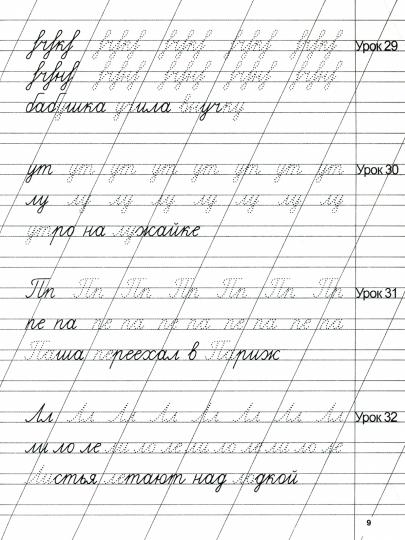 Урок 29
бабушка учила внучку
Урок 30
ут ут ут ут ут ут ут
лу лу лу лу лу лу лу
утро на лужайке
Урок 31
Пп Пп Пп Пп Пп Пп Пп
пе па пе па пе па пе па пе па
Паша переехал в Париж
Урок 32
Лл Лл Лл Лл Лл Лл Лл
ли ло ле ли ло ле ли ло ле ли ло ле
Листья летают над лодкой
9